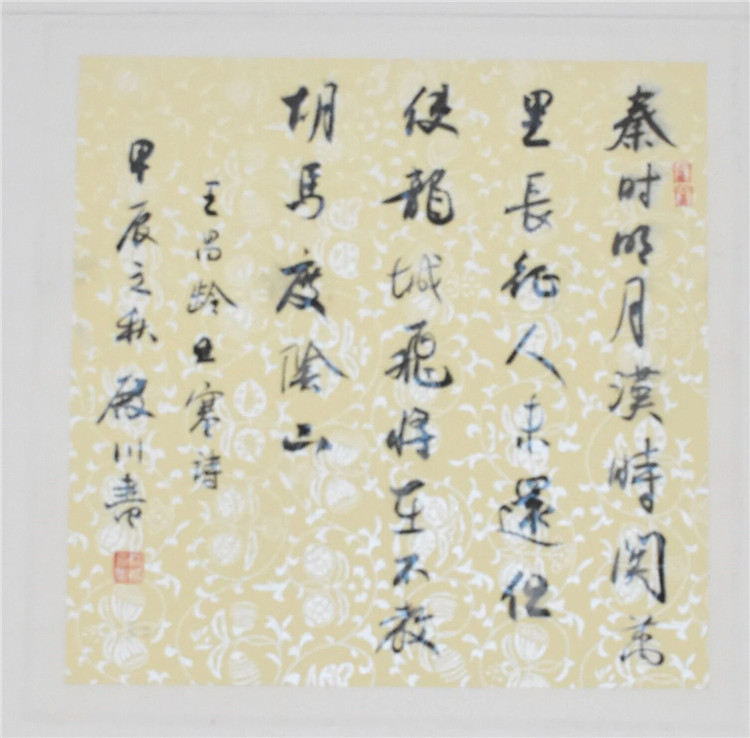 秦时明月漢時関萬
里長征人未還但
使龍城飛将在不教
胡馬度陰山
王昌龄出塞诗
甲辰之秋殿川書